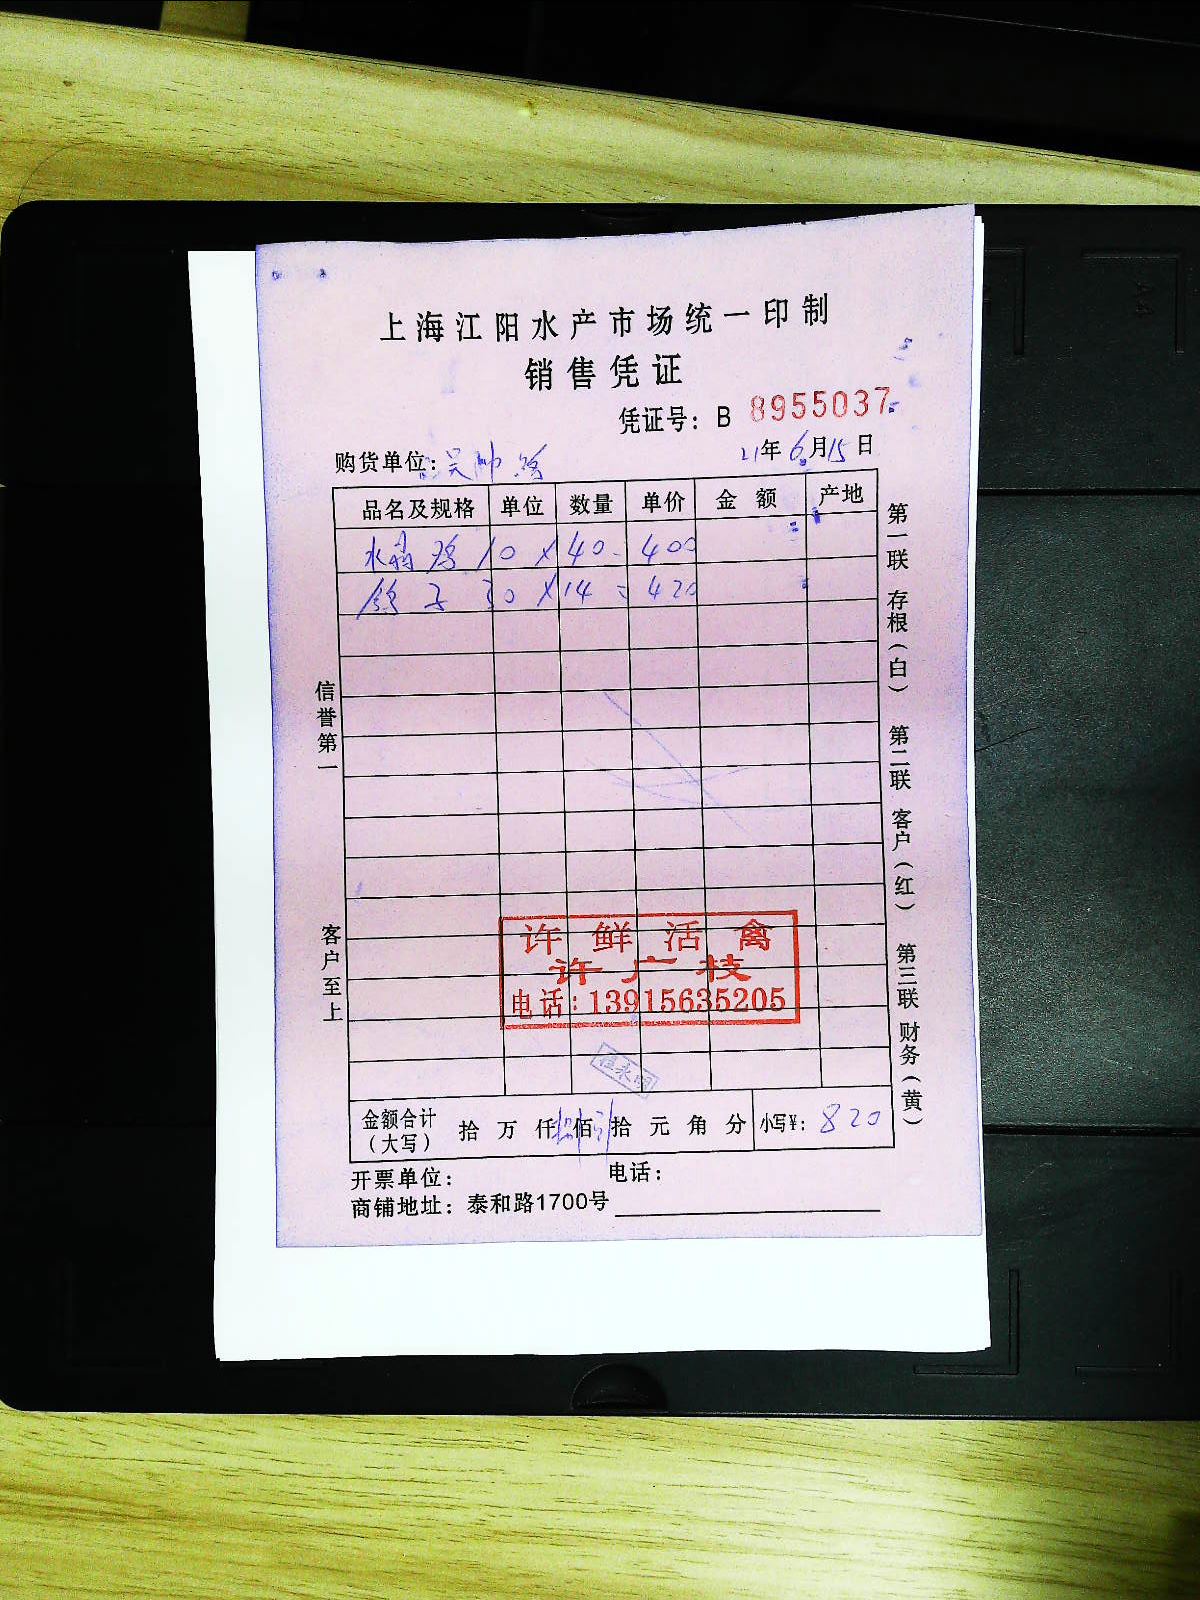 上海江阳水产市场统一印制
销售凭证
凭证号：B 8955037
购货单位：吴帅 21年6月15日
品名及规格 单位 数量 单价 金额 产地
水 鸡 10 X 40 - 400
鸽子 30 X 14 = 420
信誉第一
客户至上
第一联 存根（白） 第二联 客户（红） 第三联 财务（黄）
许鲜活禽
许广枝
电话：13915635205
金额合计（大写） 拾 万 仟 捌 佰 拾 元 角 分 小写¥：820
开票单位： 电话：
商铺地址：泰和路1700号